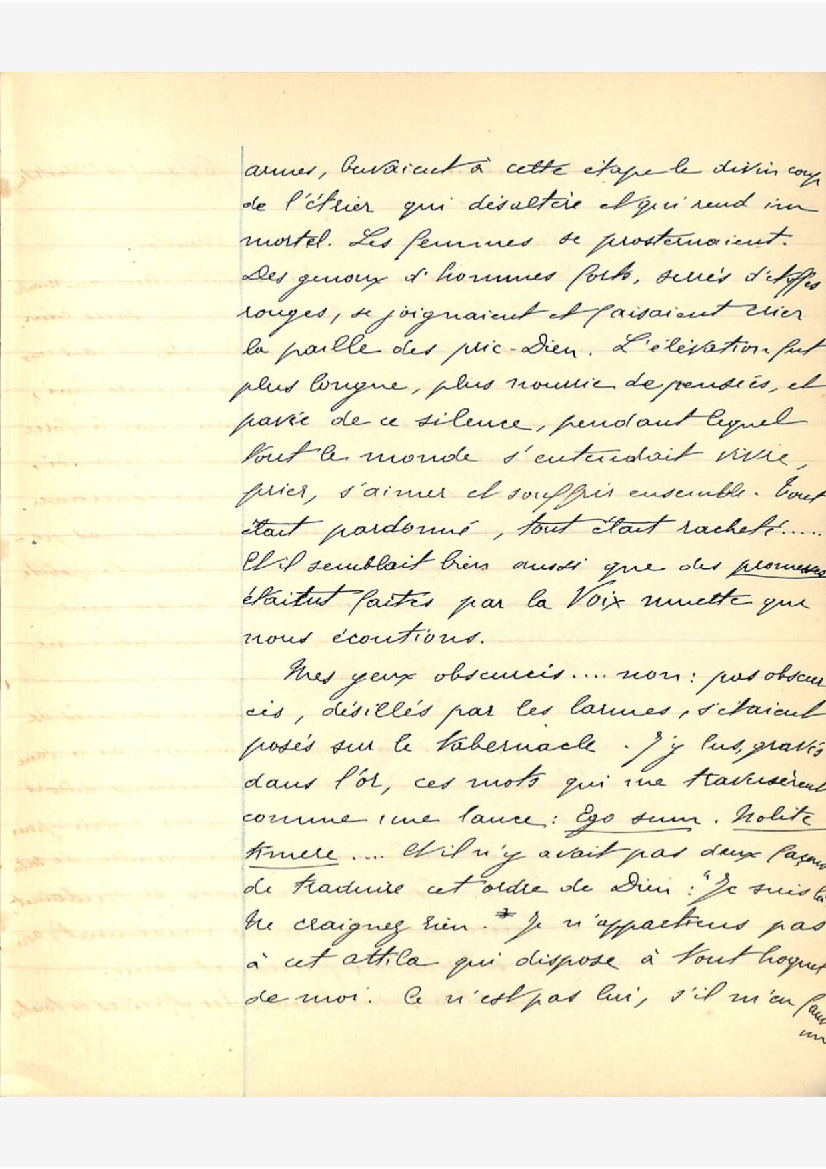 armes, buvaient à cette étape le divin coup
de l'étrier qui désaltère et qui rend im
mortel. Les femmes se prosternaient.
Des genoux d'hommes forts, serrés d'étoffes
rouges, se joignaient et faisaient crier
la paille des prie-Dieu. L'élévation fut
plus longue, plus nourrie de pensées, et
pavée de ce silence, pendant lequel
tout le monde s'entendait vivre,
prier, s'aimer et souffrir ensemble. Tout
était pardonné, tout était racheté.....
Et il semblait bien aussi que des promesses
étaient faites par la Voix muette que
nous écoutions.
Mes yeux obscurcis.... non: pas obscur
cis, désillés par les larmes, s'étaient
posés sur le tabernacle. J'y lus, gravés
dans l'or, ces mots qui me traversèrent
comme une lance: Ego sum. Nolite
timere.... Et il n'y avait pas deux façons
de traduire cet ordre de Dieu: "Je suis là
Ne craignez rien." Je n'appartiens pas
à cet attila qui dispose à tout hoquet
de moi. Ce n'est pas lui, s'il m'en faut
un